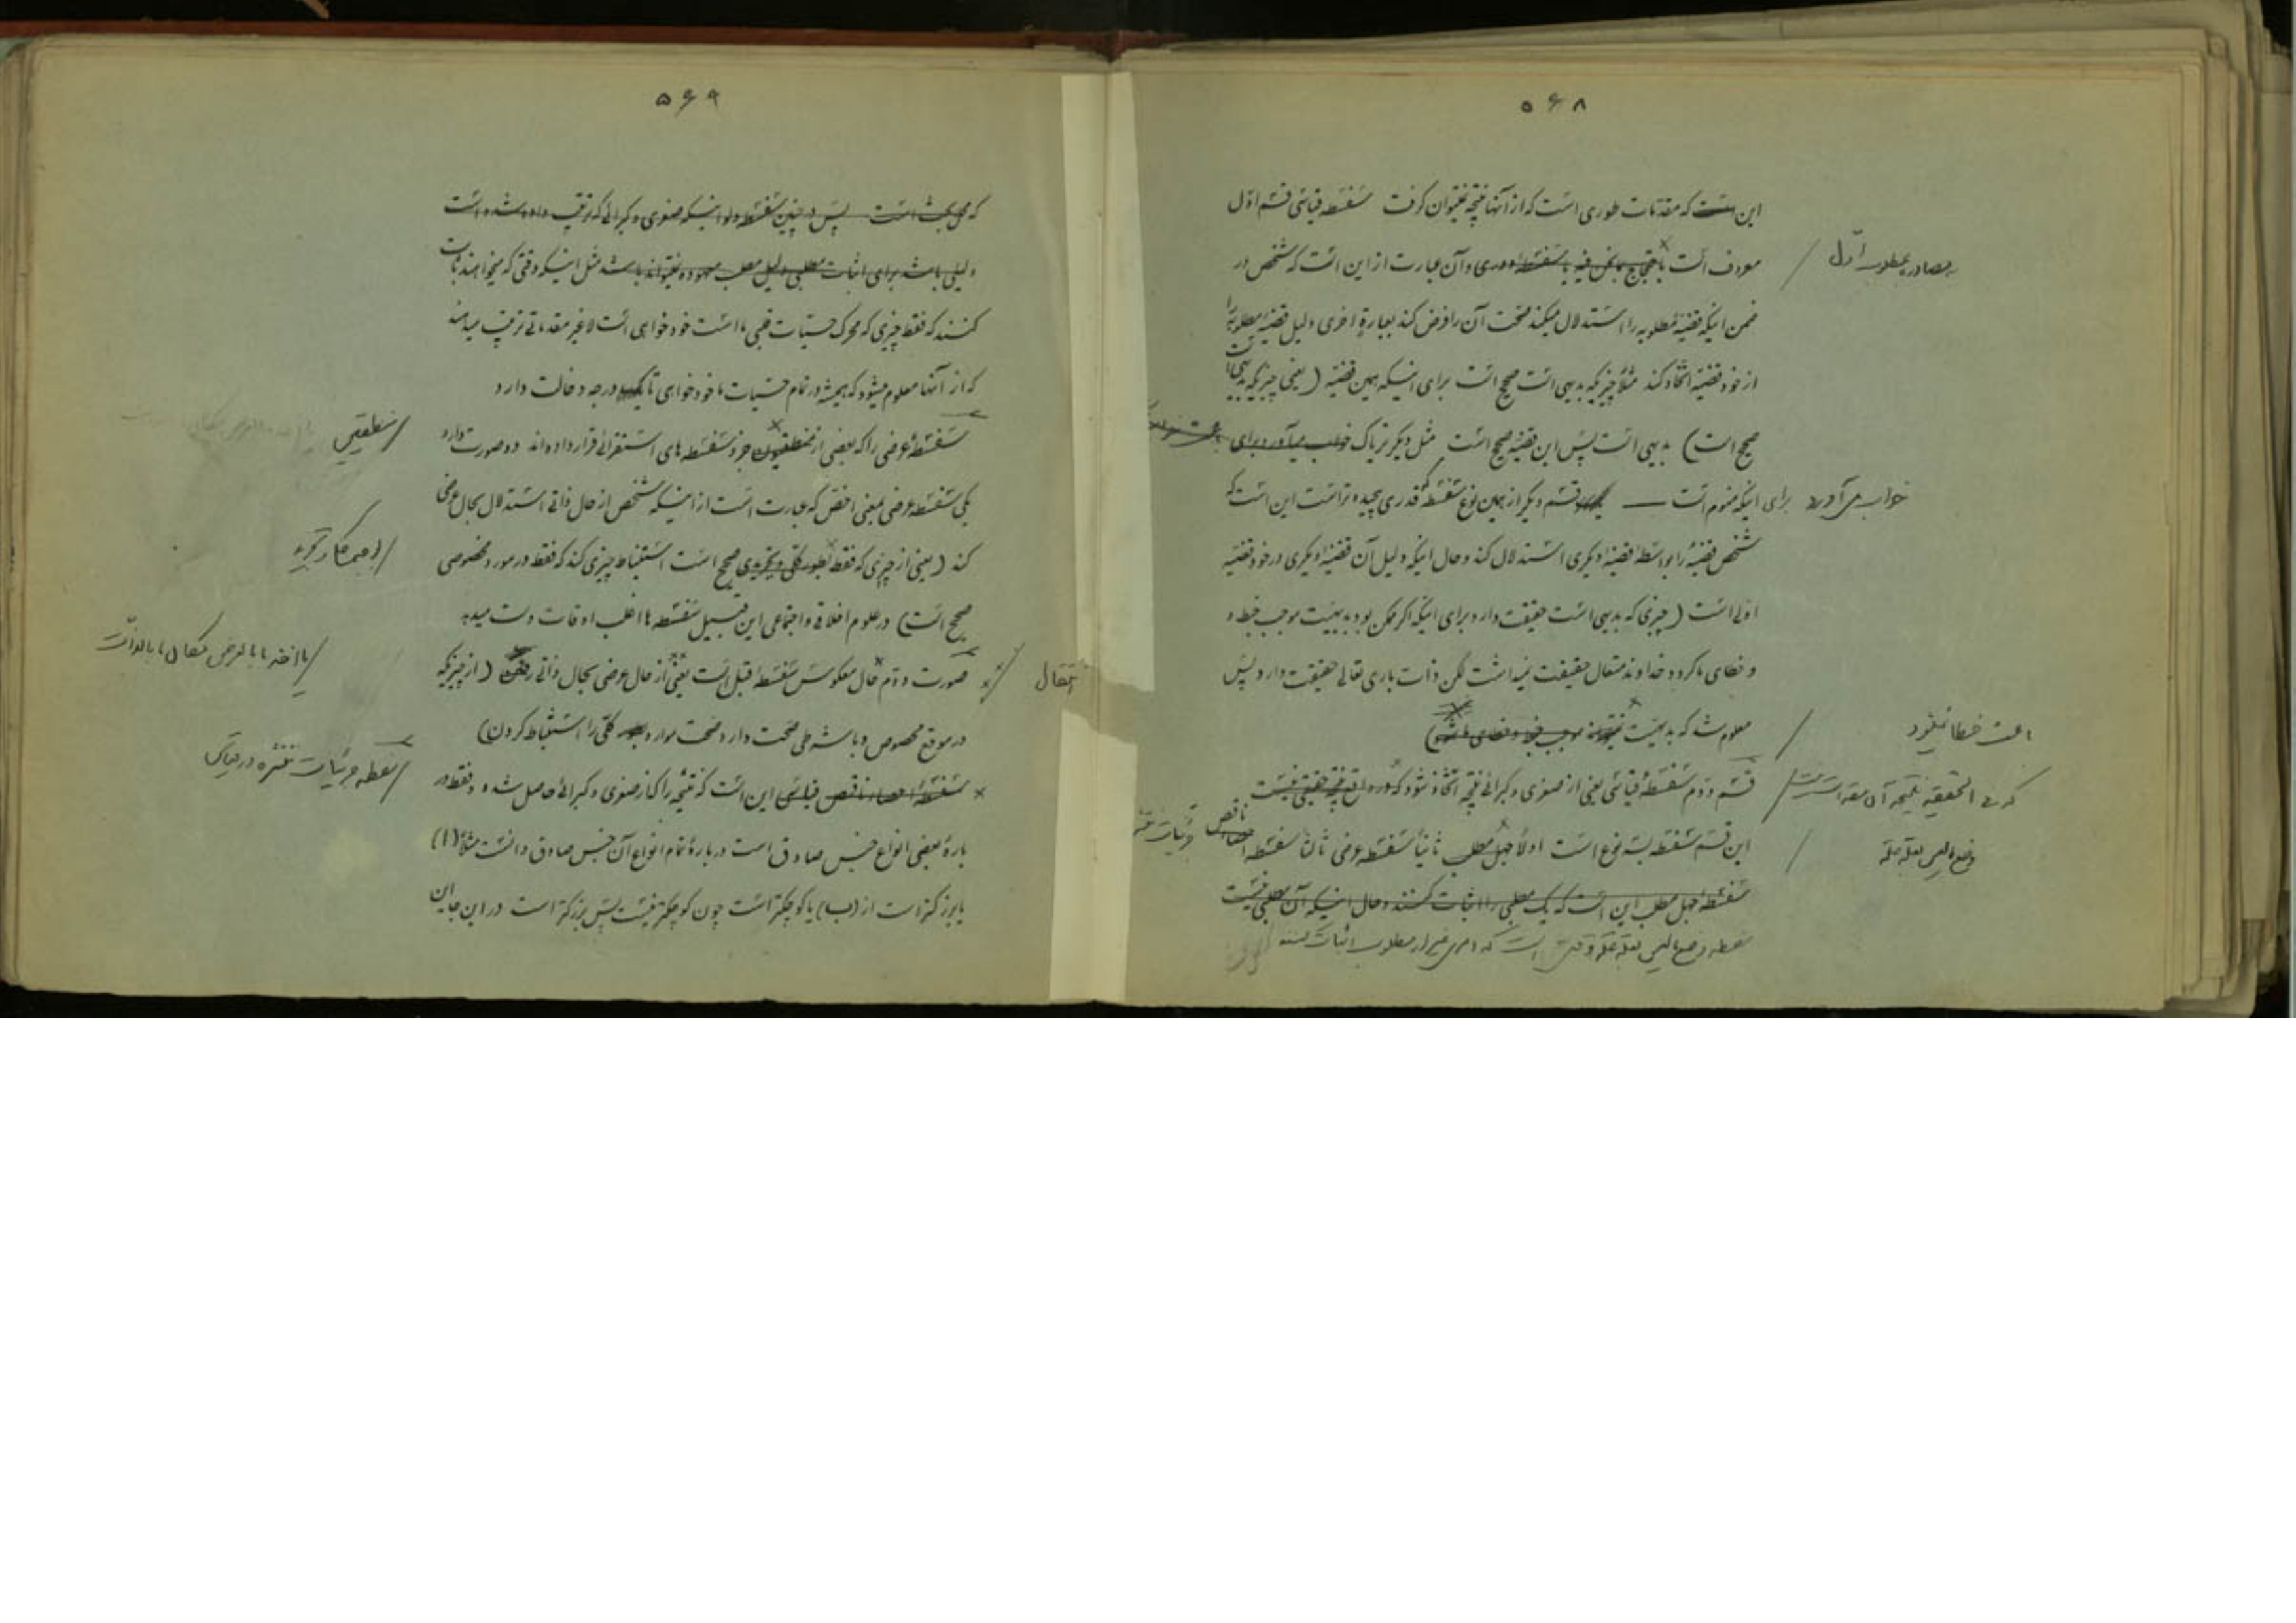 ۵۶۸
این است که مقدمات طوری است که از آنها نتیجه نمیتوان گرفت سفسطه قیاسی قسم اول
معروف است باحتجاج بما نحن فیه یا سفسطه دوری و آن عبارت از این است که شخص در
بمصادره بمطلوب اول
ضمن اینکه قضیهٔ مطلوبه را استدلال میکند صحت آن را فرض کند بعبارة اخری دلیل قضیهٔ مطلوبه را
از خود قضیه اتخاذ کند مثلاً چیزیکه بدیهی است صحیح است برای اینکه همین قضیه (یعنی چیزیکه بدیهی است
صحیح است) بدیهی است پس این قضیه صحیح است مثل دیگر تریاک خواب میآورد برای
خواب می آورد برای اینکه منوم است — قسم دیگر از همین نوع سفسطه که قدری پیچیده تر است این است که
شخص قضیهٔ را بواسطهٔ قضیهٔ دیگری استدلال کند و حال اینکه دلیل آن قضیهٔ دیگری در خود قضیه
اولی است (چیزی که بدیهی است حقیقت دارد برای اینکه اگر ممکن بود بدیهیت موجب خبط و
و خطای ما گردد خداوند متعال حقیقت نمیداشت لکن ذات باری تعالی حقیقت دارد پس
معلوم شد که بدیهیت نمیتواند موجب خبط و خطای ما شود)
باعث خطا نمیشود
قسم دوم سفسطهٔ قیاسی یعنی از صغری و کبرائی نتیجه اتخاذ شود که در واقع نتیجه حقیقی نیست
که فی الحقیقه نتیجه آن مقدمات نیست
این قسم سفسطه بسه نوع است اولاً جهل مطلب ثانیاً سفسطه عرضی ثالثاً سفسطه احصاء ناقص
وضع مالیس بعلة علة
سفسطهٔ جهل مطلب این است که یک مطلبی را اثبات کنند و حال اینکه آن مطلبی نیست
سفسطه وضع مالیس بعلة علة وقتی است که امری غیر از مطلوب اثبات کنند
۵۶۹
که محل بحث است پس در چنین سفسطه ولو اینکه صغری و کبرائی که ترتیب داده شده است
دلیلی باشد برای اثبات مطلبی دلیل مطلب معهوده نمیتواند باشد مثل اینکه وقتی که میخواهند ثابت
کنند که فقط چیزی که محرک حسیات قلبی ما است خودخواهی است لاغیر مقدماتی ترتیب میدهند
که از آنها معلوم میشود که همیشه در تمام حسیات ما خودخواهی تا یک درجه دخالت دارد
سفسطهٔ عرضی را که بعضی از منطقیون جزو سفسطه های استقرائی قرار داده اند دو صورت دارد
منطقیین
یکی سفسطه عرضی بمعنی اخص که عبارت است از اینکه شخص از حال ذاتی استدلال بحال عرضی
کند (یعنی از چیزی که فقط بطور کلی و تجریدی صحیح است استنباط چیزی کند که فقط در مورد مخصوصی
صحیح است) در علوم اخلاقی و اجتماعی این قبیل سفسطه ها اغلب اوقات دست میدهد
صورت دوم حال معکوس سفسطهٔ قبل است یعنی از حال عرضی بحال ذاتی رفتن (از چیزیکه
انتقال
یا اخذ ما بالعرض مکان ما بالذات
در موقع مخصوص و با شرطی صحت دارد صحت موارد کلی را استنباط کردن)
سفسطهٔ احصاء ناقص قیاسی این است که نتیجه را که از صغری و کبرائی حاصل شده و فقط در
بارهٔ بعضی انواع جنس صادق است در بارهٔ تمام انواع آن جنس صادق دانست مثلاً (ا)
یا بزرگتر است از (ب) یا کوچکتر است چون کوچکتر نیست پس بزرگتر است در این جا این